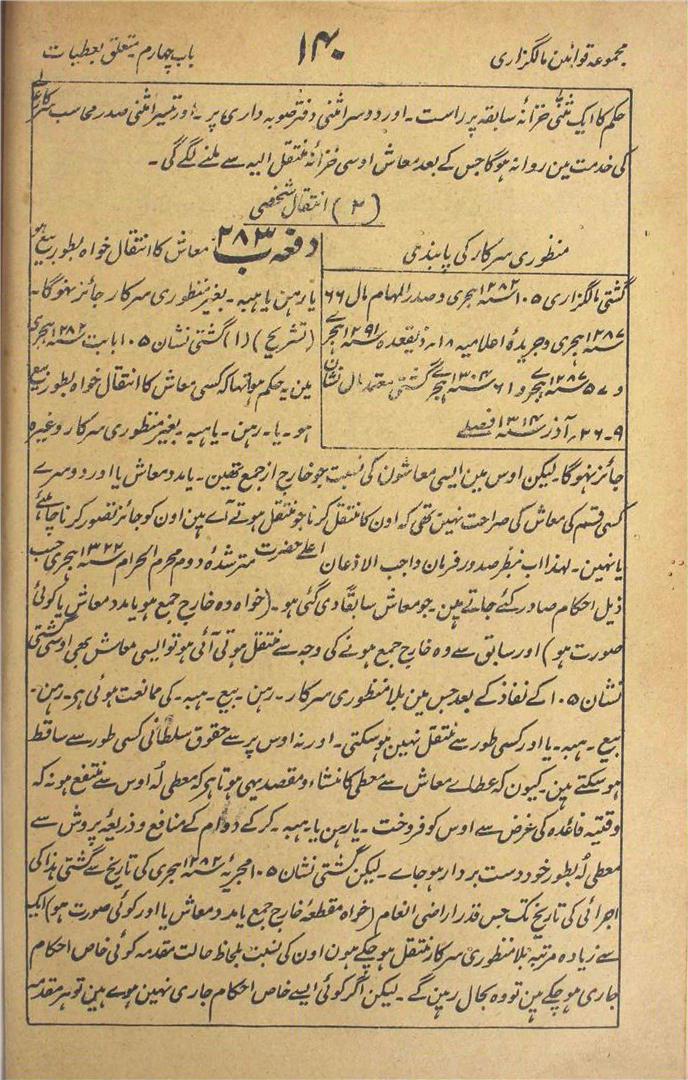 مجموعہ قوانین مالگزاری
۱۴۰
باب چہارم متعلق بعطیات
حکم کا ایک مثنیٰ خزانۂ سابقہ پر راست ۔ اور دوسرا مثنیٰ دفتر صوبہ داری پر ۔ اور تیسرا مثنیٰ صدر محاسب سرکار عالی
کی خدمت مین روانہ ہوگا جس کے بعد معاش اوسی خزانۂ منتقل الیہ سے ملنے لگے گی ۔
(۲) انتقال شخصی
منظوری سرکار کی پابندی
گشتی مالگزاری ۱۰۵ سنہ ۱۲۸۲ ہجری و صدر المہام مال ۶۶
سنہ ۱۲۸۷ ہجری و جریدۂ اعلامیہ ۱۸ ذیقعدہ سنہ ۱۲۹۱ ہجری
و ۵۷ سنہ ۱۲۸۷ ہجری و ۶۱ سنہ ۱۳۰۴ ہجری گشتی معتمد مال نشان
۹ ۔ ۲۶ ؍ آذر سنہ ۱۳۱۴ فصلی
دفعہ ۲۸۳ ب معاش کا انتقال خواہ بطور بیع ہو
یا رہن یا ہبہ ۔ بغیر منظوری سرکار جائز نہوگا ۔
(تشریح) (۱) گشتی نشان ۱۰۵ بابت سنہ ۱۲۸۲ ہجری
مین یہ حکم ہوا تھا کہ کسی معاش کا انتقال خواہ بطور بیع
ہو ۔ یا ۔ رہن ۔ یا ہبہ ۔ بغیر منظوری سرکار وغیرہ
جائز نہوگا ۔ لیکن اوس مین ایسی معاشون کی نسبت جو خارج از جمع تھین ۔ یا مدد معاش یا اور دوسرے
کسی قسم کی معاش کی صراحت نہین تھی کہ اون کا منتقل کرنا جو منتقل ہوتے آے ہین اون کو جائز تصور کرنا چاہیئے
یا نہین ۔ لہذا اب بنظر صدور فرمان واجب الاذعان اعلےٰ حضرت مترشدۂ دوم محرم الحرام سنہ ۱۳۲۲ ہجری حسب
ذیل احکام صادر کئے جاتے ہین ۔ جو معاش سابقاً دی گئی ہو ۔ (خواہ وہ خارج جمع ہو یا مدد معاش یا کوئی
صورت ہو) اور سابق سے وہ خارج جمع ہونے کی وجہ سے منتقل ہوتی آئی ہو تو ایسی معاش بھی اوسی گشتی
نشان ۱۰۵ کے نفاذ کے بعد جس مین بلا منظوری سرکار ۔ رہن ۔ بیع ۔ ہبہ ۔ کی ممانعت ہوئی ہی ۔ رہن ۔
بیع ۔ ہبہ ۔ یا اور کسی طور سے منتقل نہین ہوسکتی ۔ اور نہ اوس پر سے حقوق سلطانی کسی طور سے ساقط
ہو سکتے ہین ۔ کیون کہ عطاے معاش سے معطی کا منشاء و مقصد یہی ہوتا ہی کہ معطی لہٗ اوس سے متمتع ہو نہ کہ
وقتیہ فائدہ کی غرض سے اوس کو فروخت ۔ یا رہن یا ہبہ ۔ کر کے دوام کے منافع و ذریعۂ پرورش سے
معطی لہٗ بطور خود دست بردار ہو جاے ۔ لیکن گشتی نشان ۱۰۵ مجریۂ سنہ ۱۲۸۲ ہجری کی تاریخ سے گشتی ہذا کی
اجرائی کی تاریخ تک جس قدر اراضی انعام (خواہ مقطعہ خارج جمع یا مدد معاش یا اور کوئی صورت ہو) ایک
سے زیادہ مرتبہ بلا منظوری سرکار منتقل ہو چکے ہون اون کی نسبت بلحاظ حالت مقدمہ کوئی خاص احکام
جاری ہو چکے ہین تو وہ بحال رہین گے ۔ لیکن اگر کوئی ایسے خاص احکام جاری نہین ہوے ہین تو ہر مقدمہ